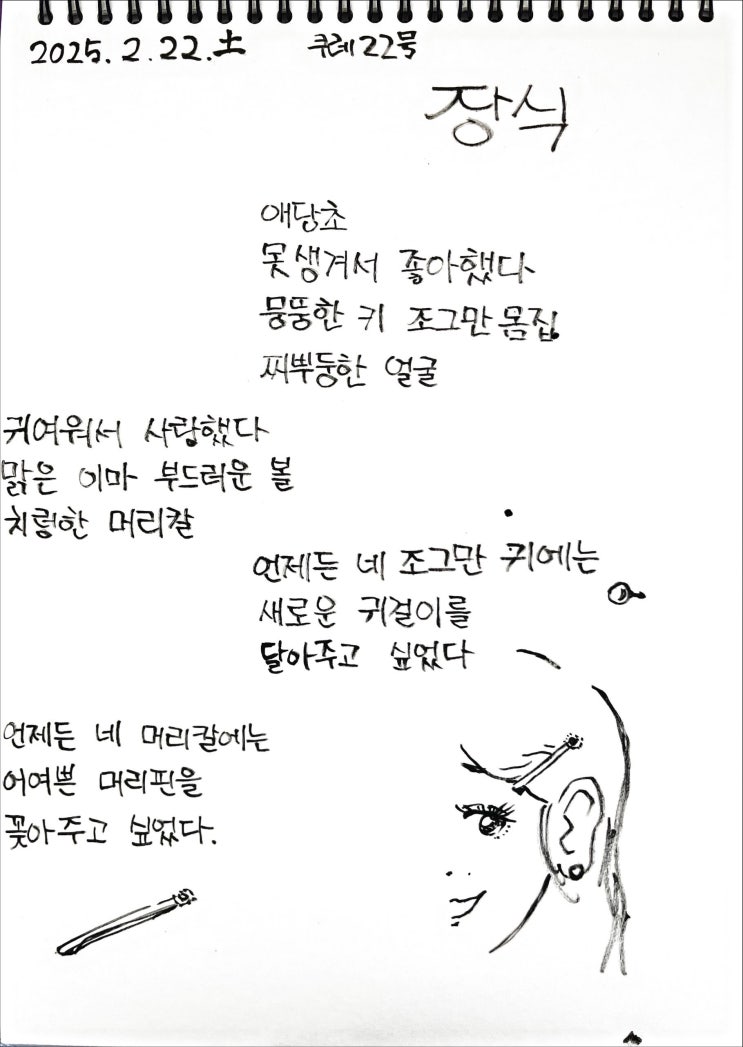 2025. 2. 22. 土 쿠레22목
장식
애당초
못생겨서 좋아했다
뭉뚱한 키 조그만 몸집
찌뿌둥한 얼굴
귀여워서 사랑했다
맑은 이마 부드러운 볼
치렁한 머리칼
언제든 네 조그만 귀에는
새로운 귀걸이를
달아주고 싶었다
언제든 네 머리칼에는
어여쁜 머리핀을
꽂아주고 싶었다.